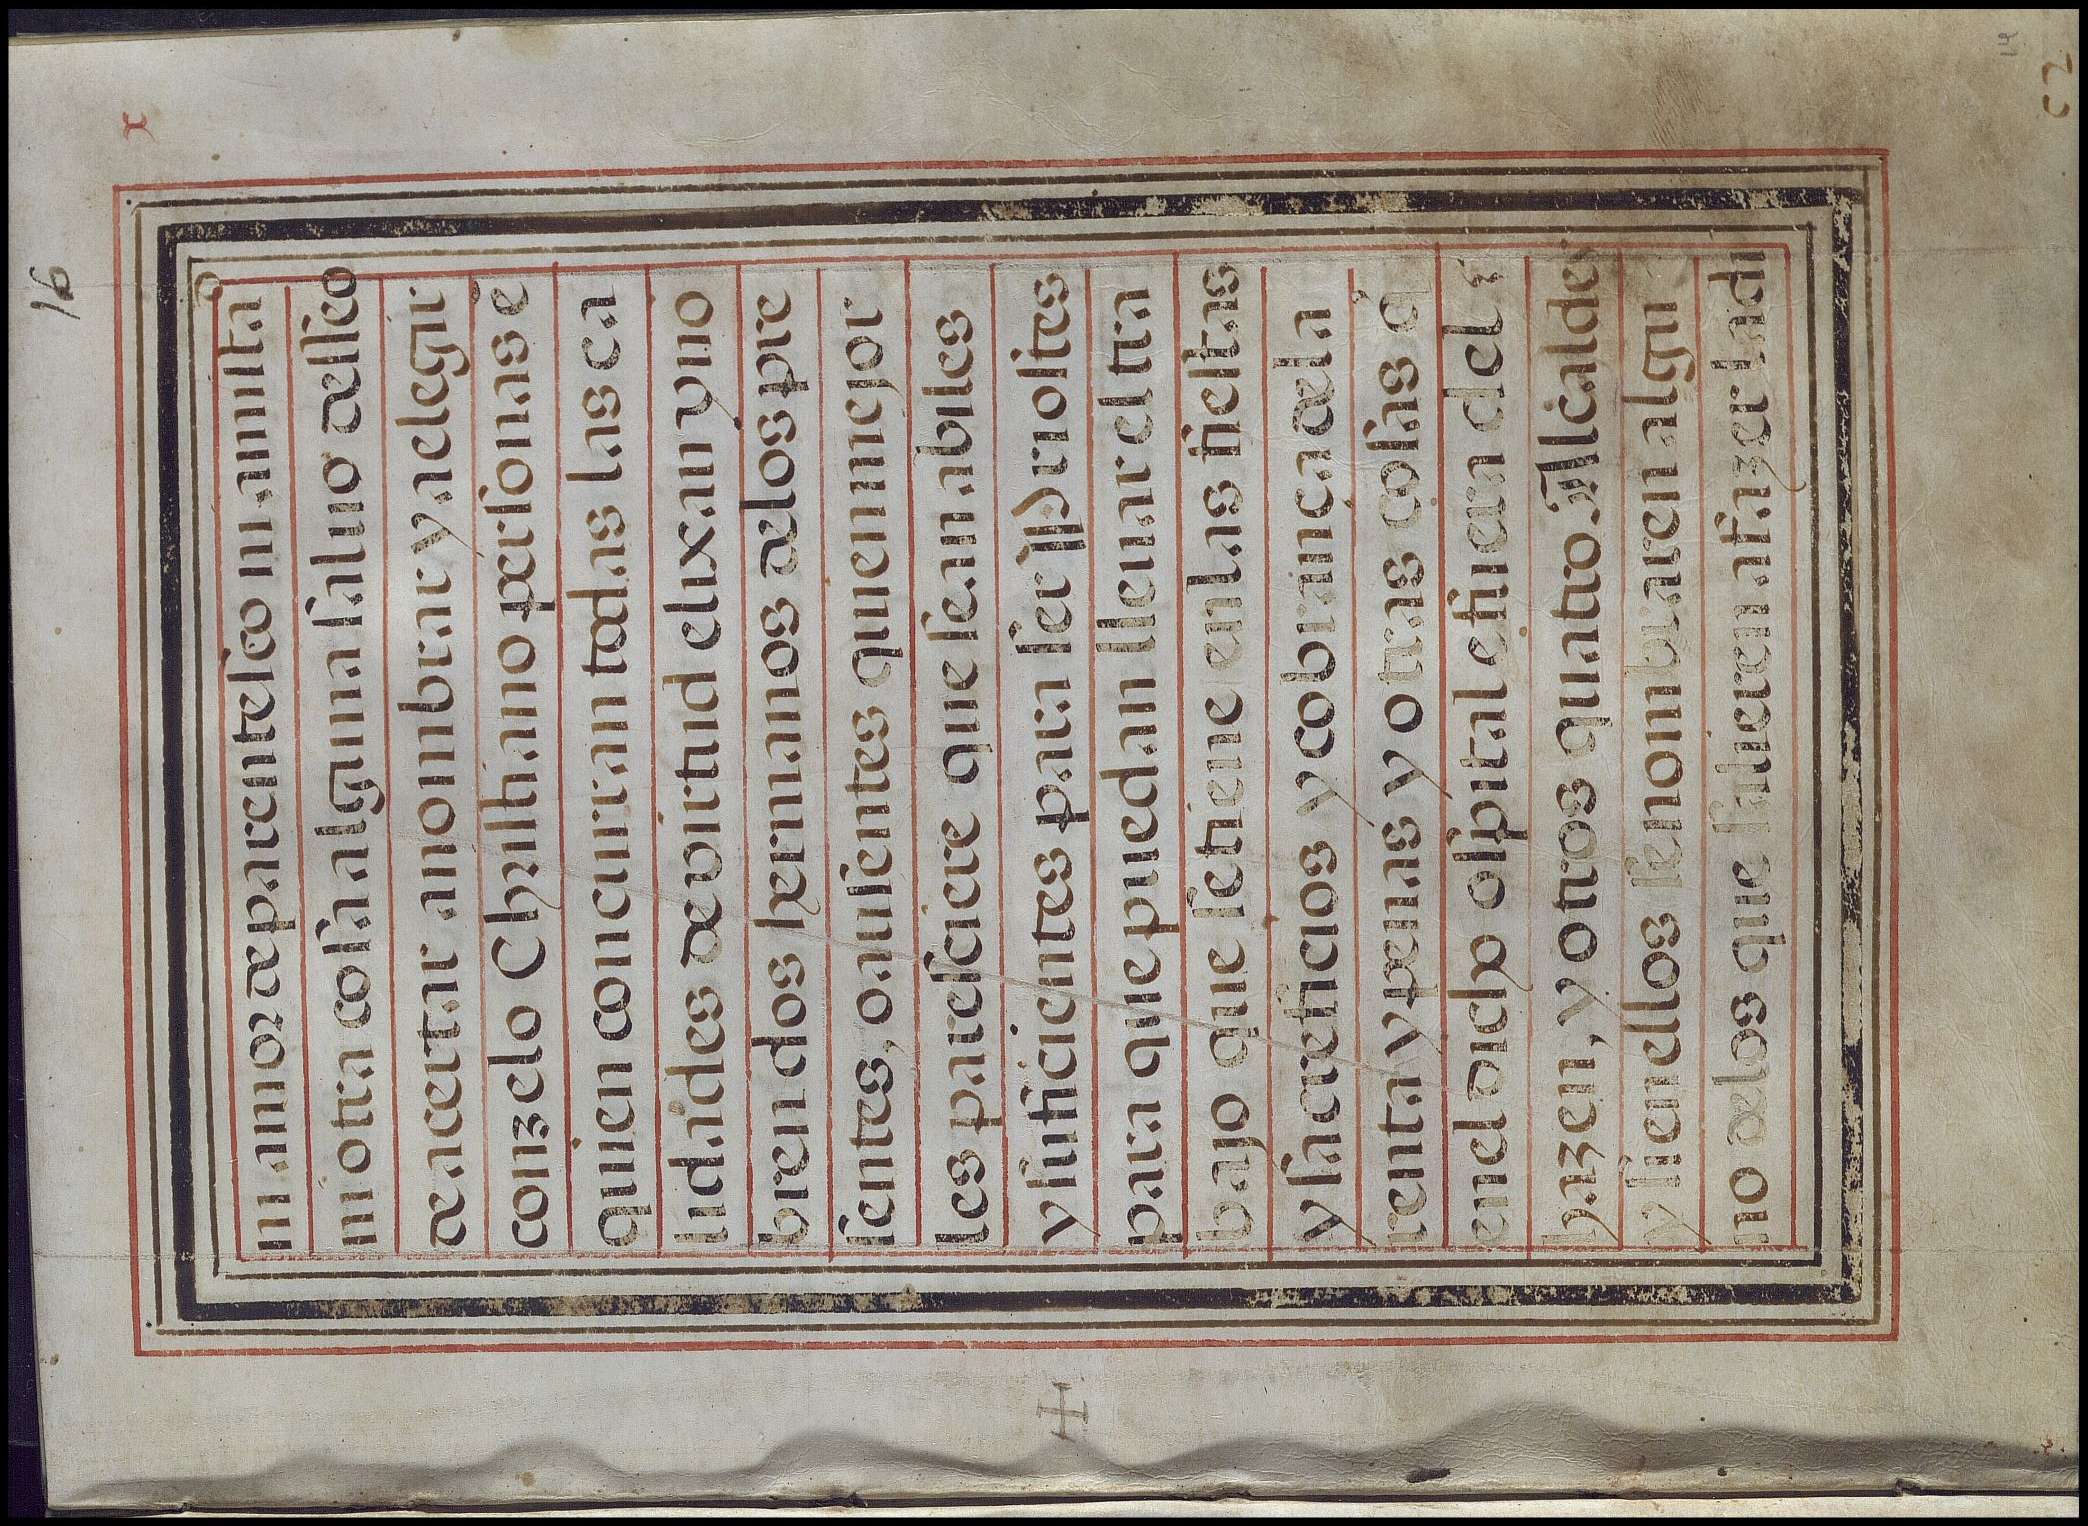 16
ni amor de parentesco ni amista
ni otra cosa alguna saluo desseo
de acertar a nombrar y a elegir
con zelo Christiano personas ē
quien concurran todas las ca
lidades de virtud elixan y no
bren dos hermanos de los pre
sentes, o ausentes quien mejor
les paresciere que sean abiles
y suficientes para ser Priostes
para que puedan lleuar el tra
bajo que se tiene en las fiestas
y sacrefiçios y cobrança de la
renta y penas y otras cosas q̄
en el dicho ospital e fuera del s
hazen, y otros quatro Alcaldes
y si en ellos se nombraren algu
no de los que salieren a fazer la di